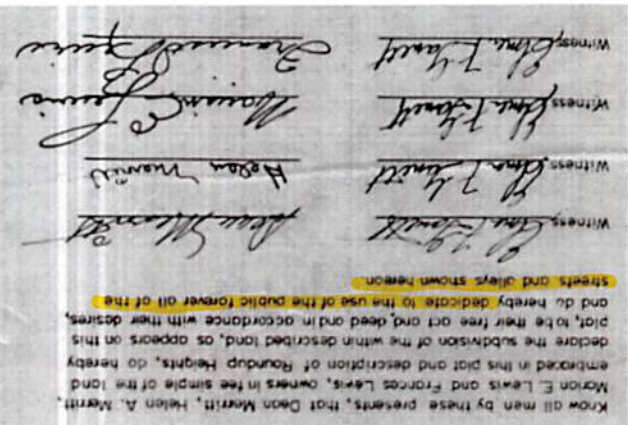 Know all men by these presents, that Dean Merritt, Helen A. Merritt,
Marion E. Lewis and Frances Lewis, owners in fee simple of the land
embraced in this plat and description of Roundup Heights, do hereby
declare the subdivision of the within described land, as appears on this
plat, to be their free act and deed and in accordance with their desires,
and do hereby dedicate to the use of the public forever all of the
streets and alleys shown hereon
Witness Dean Merritt
Witness Helen Merritt
Witness Marion E Lewis
Witness Frances Lewis